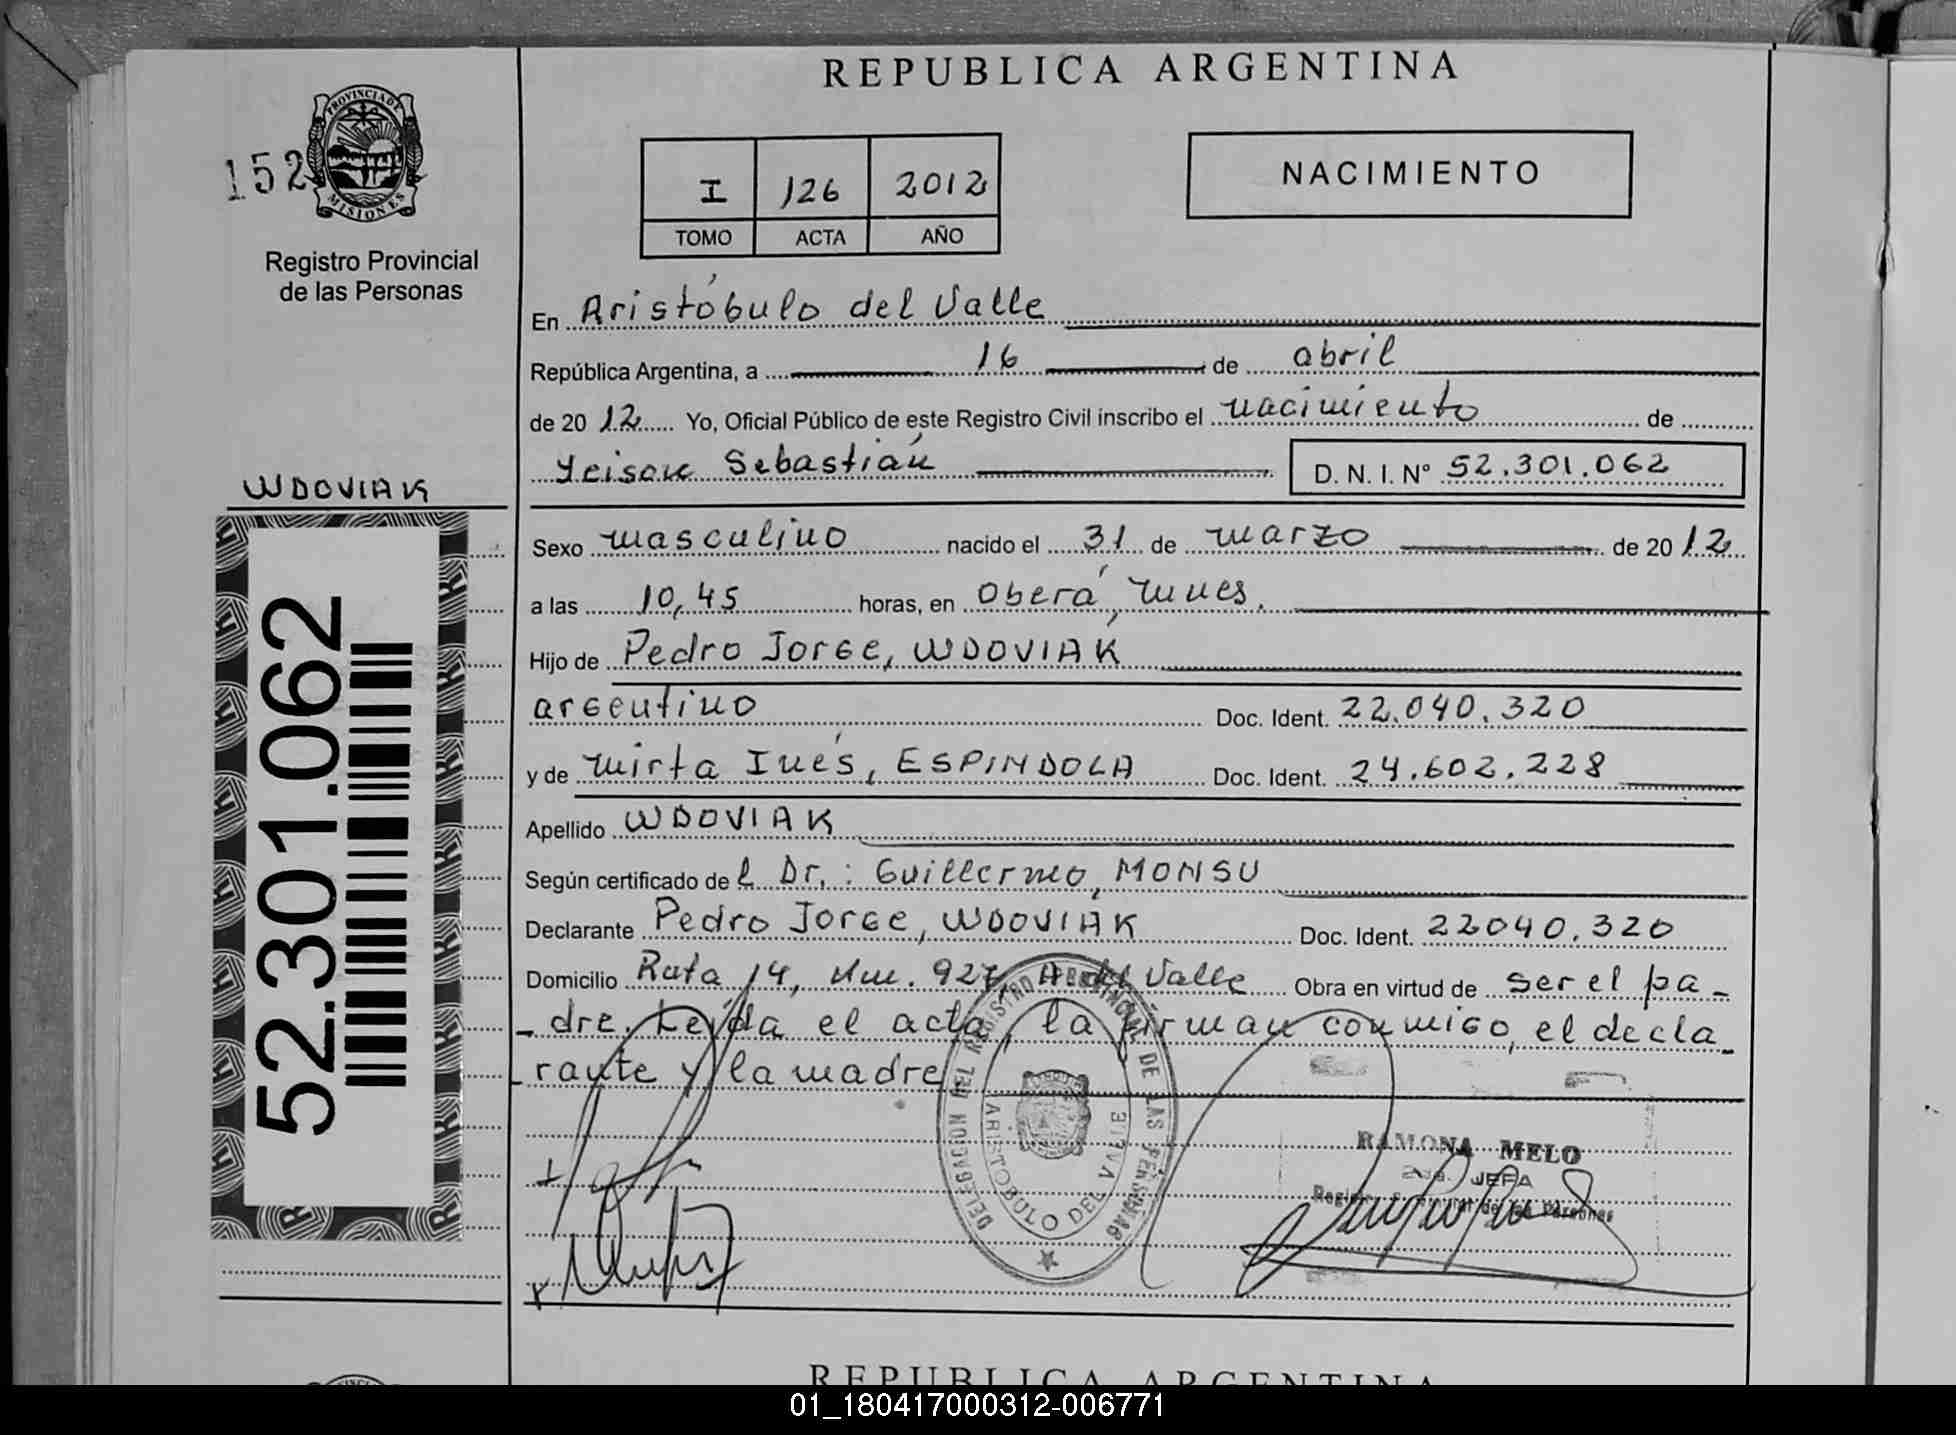 REPUBLICA ARGENTINA
152
PROVINCIA DE MISIONES
Registro Provincial
de las Personas
I 126 2012
TOMO ACTA AÑO
NACIMIENTO
En Aristóbulo del Valle
República Argentina, a 16 de abril
de 2012 Yo, Oficial Público de este Registro Civil inscribo el nacimiento de
Yeison Sebastián D. N. I. N° 52.301.062
WDOVIAK
52.301.062
Sexo masculino nacido el 31 de marzo de 2012
a las 10,45 horas, en Oberá, Mnes.
Hijo de Pedro Jorge, WDOVIAK
argentino Doc. Ident. 22.040.320
y de Mirta Inés, ESPINDOLA Doc. Ident. 24.602.228
Apellido WDOVIAK
Según certificado del Dr.: Guillermo, MONSU
Declarante Pedro Jorge, WDOVIAK Doc. Ident. 22040.320
Domicilio Ruta 14, Km. 927, A. del Valle Obra en virtud de ser el pa-
-dre. Leída el acta, la firman conmigo, el decla-
-rante y la madre
DELEGACION DEL REGISTRO PROVINCIAL DE LAS PERSONAS
ARISTOBULO DEL VALLE
RAMONA MELO
2da. JEFA
Registro Provincial de las Personas
REPUBLICA ARGENTINA
01_180417000312-006771